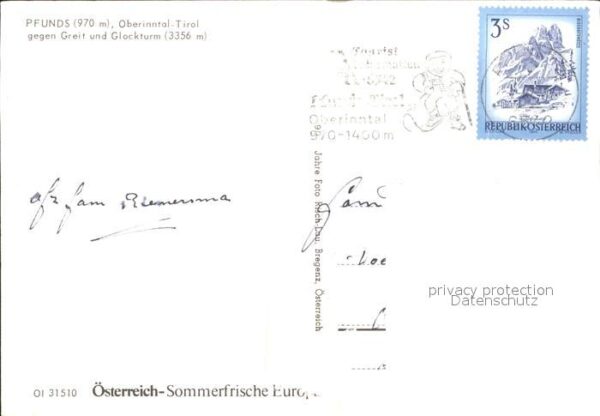 PFUNDS (970 m), Oberinntal-Tirol
gegen Greit und Glockturm (3356 m)
Oberinntal
970-1400m
3S
REPUBLIK ÖSTERREICH
Jahre Foto Risch-Lau, Bregenz, Österreich
afz fam Riemersma
Fam
privacy protection
Datenschutz
OI 31510 Österreich-Sommerfrische Europ